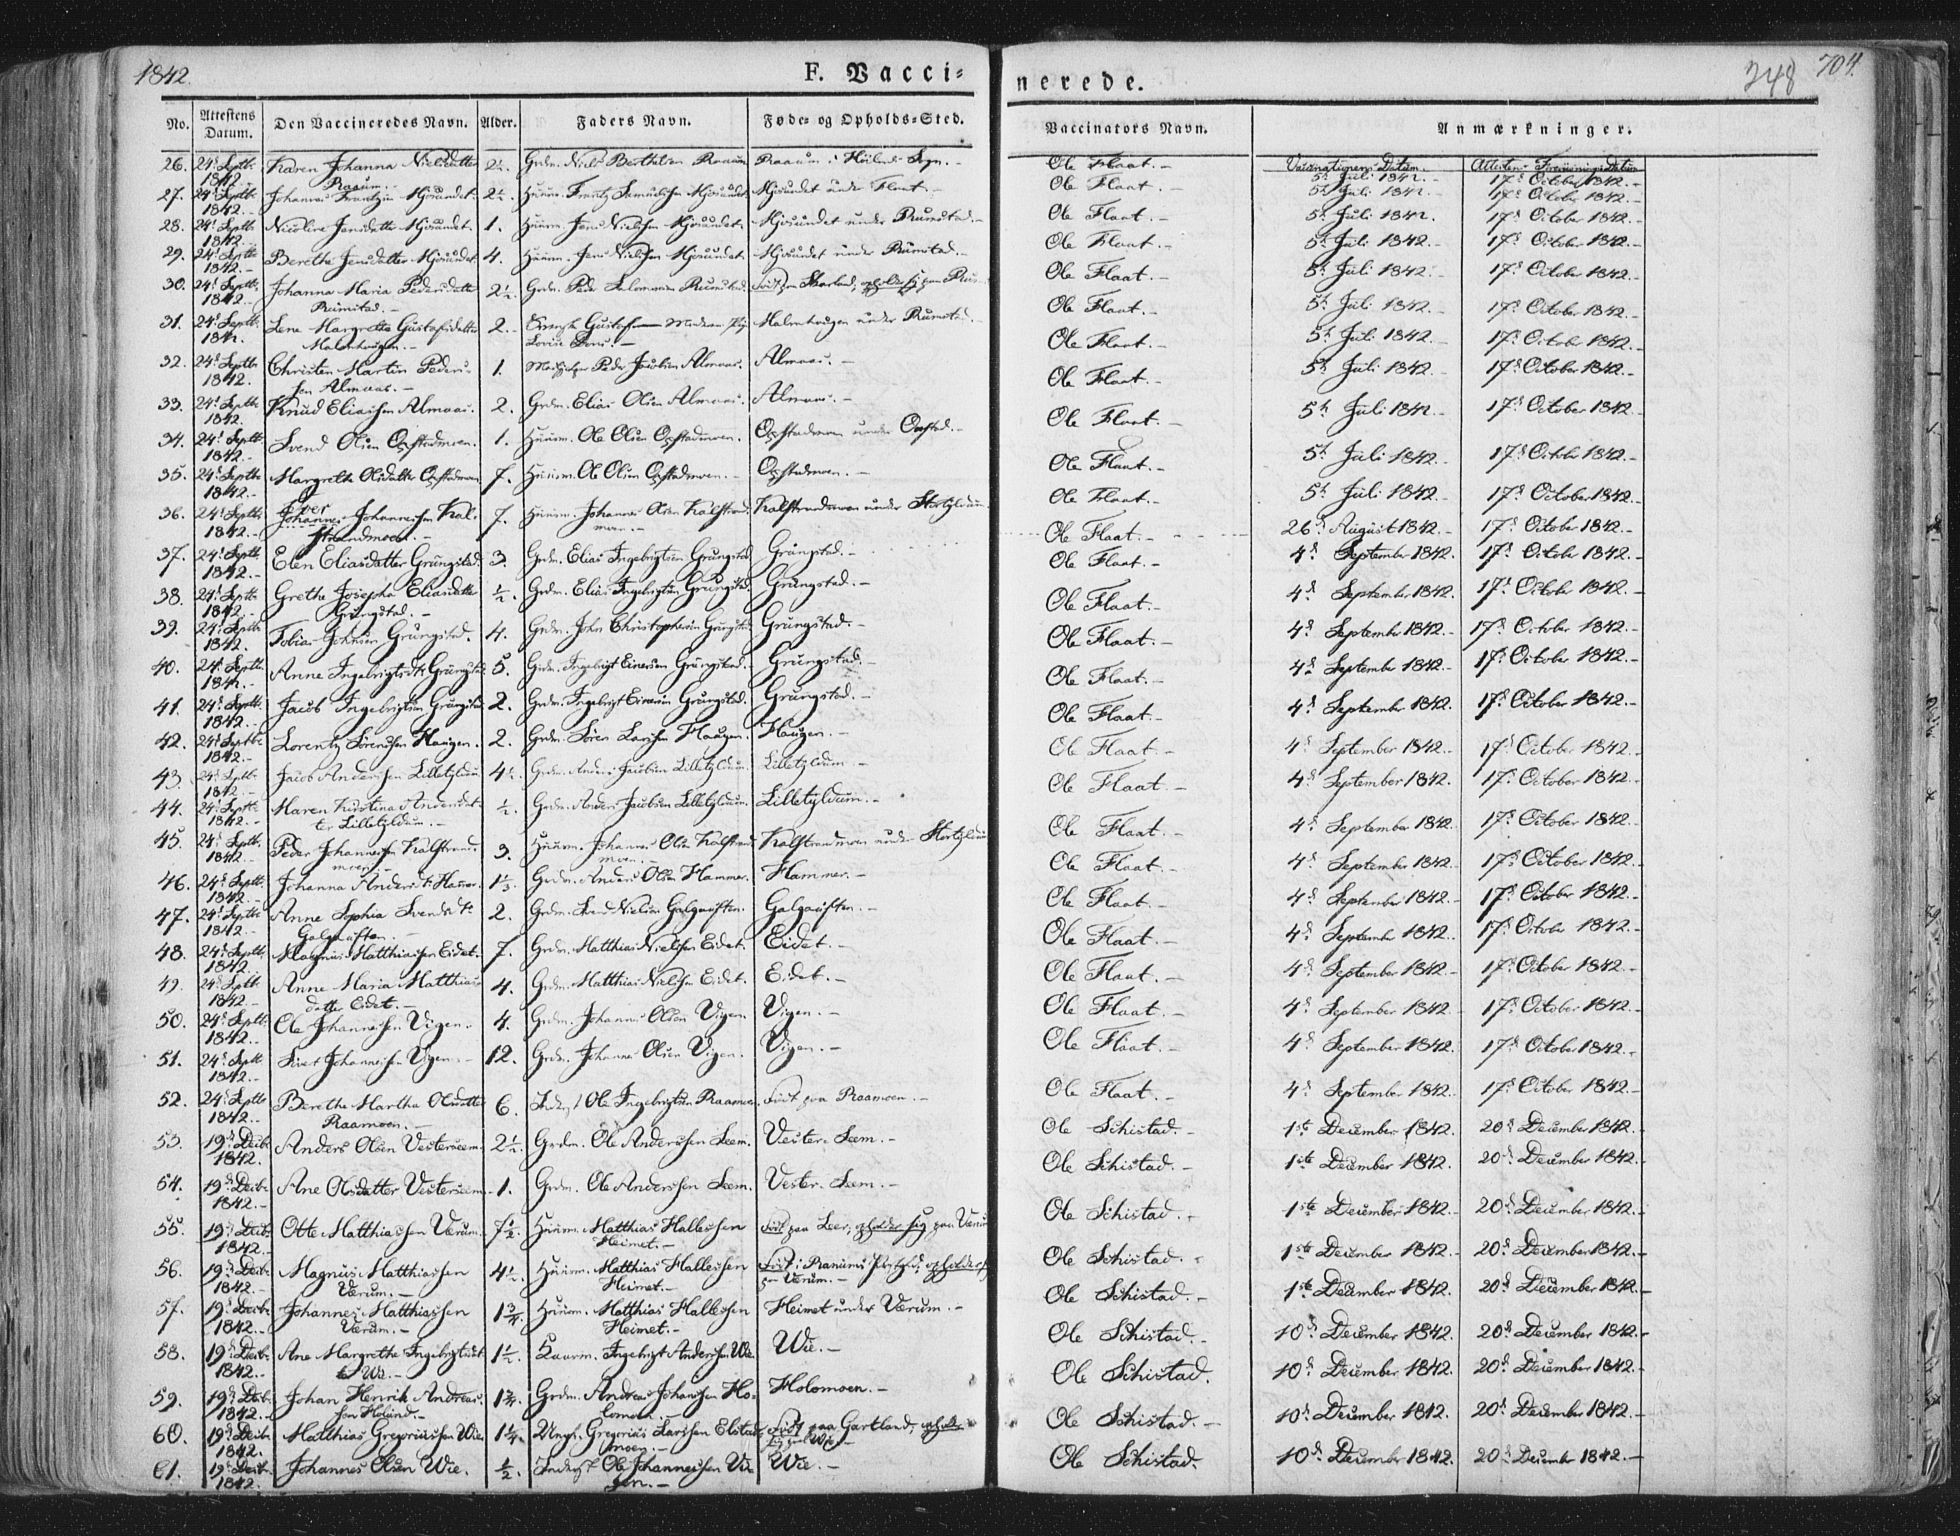 1842.
F. Vacci-
nerede.
348 704.
No. Attestens Datum. Den Vaccineredes Navn. Alder. Faders Navn. Føde- og Opholds-Sted. Vaccinators Navn. Anmærkninger.
Vaccinationens Datum. Attesten
26. 24d Septbr 1842. Karen Johanna Nielsdatter Raaum. 2½. Grdm. Niels Berthelsen Raaum Raaum i Sogn. Ole Flaat. 5t Juli 1842. 17d October 1842.
27. 24d Septbr 1842. Johannes Frantzen 2½. Huusm. Frantz under Flaat. Ole Flaat. 5t Juli 1842. 17d October 1842.
28. 24d Septbr 1842. Nicoline Jensdatter 1. Huusm. Jens Nielsen under Rumstad. Ole Flaat. 5t Juli 1842. 17d October 1842.
29. 24d Septbr 1842. Berethe Jensdatter 4. Huusm. Jens Nielsen under Rumstad. Ole Flaat. 5t Juli 1842. 17d October 1842.
30. 24d Septbr 1842. Johanna Maria Pedersdatter Rumstad. 2½. Grdm. Peder Salomonsen Rumstad. Født paa opholder sig paa Ole Flaat. 5t Juli 1842. 17d October 1842.
31. 24d Septbr 1842. Lene Margrethe Gustafsdatter 2. Gustafsen under Rumstad. Ole Flaat. 5t Juli 1842. 17d October 1842.
32. 24d Septbr 1842. Christen Martin Pedersen Almaas. 1. Peder Jacobsen Almaas. Almaas. Ole Flaat. 5t Juli 1842. 17d October 1842.
33. 24d Septbr 1842. Knud Eliassen Almaas. 2. Grdm. Elias Olsen Almaas. Almaas. Ole Flaat. 5t Juli 1842. 17d October 1842.
34. 24d Septbr 1842. Svend Olsen Opstadmoen. 1. Huusm. Ole Olsen Opstadmoen. Opstadmoen under Opstad. Ole Flaat. 5t Juli 1842. 17d October 1842.
35. 24d Septbr 1842. Margrethe Olsdatter Opstadmoen 7. Huusm. Ole Olsen Opstadmoen. Opstadmoen. Ole Flaat. 5t Juli 1842. 17d October 1842.
36. 24d Septbr 1842. Iver Johannes Johannessen Kalfstrandmoen. 7. Huusm. Johannes Olsen Kalfstrandmoen. Kalfstrandmoen under Stortyldum. Ole Flaat. 26d August 1842. 17d October 1842.
37. 24d Septbr 1842. Elen Eliasdatter Grüngstad. 3. Grdm. Elias Ingebrigtsen Grungstad Grüngstad. Ole Flaat. 4d September 1842. 17d October 1842.
38. 24d Septbr 1842. Grethe Josepha Eliasdatter Grüngstad. ½. Grdm. Elias Ingebrigtsen Grüngstad Grüngstad. Ole Flaat. 4d September 1842. 17d October 1842.
39. 24d Septbr 1842. Tobias Johnsen Grüngstad. 4. Grdm. John Christophersen Grüngstad Grüngstad. Ole Flaat. 4d September 1842. 17d October 1842.
40. 24d Septbr 1842. Anne Ingebrigtsdtr Grüngstad 5. Grdm. Ingebrigt Einersen Grüngstad. Grüngstad. Ole Flaat. 4d September 1842. 17d October 1842.
41. 24d Septbr 1842. Jacob Ingebrigtsen Grüngstad 2. Grdm. Ingebrigt Einersen Grüngstad. Grüngstad. Ole Flaat. 4d September 1842. 17d October 1842.
42. 24d Septbr 1842. Lorentz Sørensen Haugen. 2. Grdm. Søren Larsen Haugen. Haugen. Ole Flaat. 4d September 1842. 17d October 1842.
43. 24d Septbr 1842. Jacob Andersen Lilletyldum 4½. Grdm. Anders Jacobsen Lilletyldum. Lilletyldum. Ole Flaat. 4d September 1842. 17d October 1842.
44. 24d Septbr 1842. Maren Kirstina Andersdatter Lilletyldum. ½. Grdm. Anders Jacobsen Lilletyldum. Lilletyldum. Ole Flaat. 4d September 1842. 17d October 1842.
45. 24d Septbr 1842. Peder Johannessen Kalfstrandmoen. 3. Huusm. Johannes Olsen Kalfstrandmoen. Kalfstrandmoen under Stortyldum Ole Flaat. 4d September 1842. 17d October 1842.
46. 24d Septbr 1842. Johanna Andersdtr Hammer. 1⅓. Grdm. Anders Olsen Hammer. Hammer. Ole Flaat. 4d September 1842. 17d October 1842.
47. 24d Septbr 1842. Anne Sophia Svendsdtr Galgauften. 2. Grdm. Svend Nielsen Galgauften. Galgauften. Ole Flaat. 4d September 1842. 17d October 1842.
48. 24d Septbr 1842. Magnus Matthiassen Eidet. 7. Grdm. Matthias Nielsen Eidet. Eidet. Ole Flaat. 4d September 1842. 17d October 1842.
49. 24d Septbr 1842. Anne Maria Matthiasdatter Eidet. 4. Grdm. Matthias Nielsen Eidet. Eidet. Ole Flaat. 4d September 1842. 17d October 1842.
50. 24d Septbr 1842. Ole Johannessen Vigen. 4. Grdm. Johannes Olsen Vigen Vigen. Ole Flaat. 4d September 1842. 17d October 1842.
51. 24d Septbr 1842. Sivert Johannessen Vigen. 12. Grdm. Johannes Olsen Vigen. Vigen. Ole Flaat. 4d September 1842. 17d October 1842.
52. 24d Septbr 1842. Berethe Martha Olsdatter Raamoen. 6. Inderst Ole Ingebrigtsen Raamoen Født paa Raamoen. Ole Flaat. 4d September 1842. 17d October 1842.
53. 19d Decbr 1842. Anders Olsen Vesterseem. 2½. Grdm. Ole Anderssen Seem. Vester-Seem. Ole Schistad. 1ste December 1842. 20d December 1842.
54. 19d Decbr 1842. Ane Olsdatter Vesterseem. 1. Grdm. Ole Anderssen Seem. Vester-Seem. Ole Schistad. 1ste December 1842. 20d December 1842.
55. 19d Decbr 1842. Otte Matthiassen Værum. 7½. Huusm. Matthias Hallessen Heimet. Født paa Leer, opholder sig paa Værum Ole Schistad. 1ste December 1842. 20d December 1842.
56. 19d Decbr 1842. Magnus Matthiassen Værum. 4½. Huusm. Matthias Hallessen Heimet. Født i Ranums paa Værum. Ole Schistad. 1ste December 1842. 20d December 1842.
57. 19d Decbr 1842. Johannes Matthiassen Værum. 1¾. Huusm. Matthias Hallessen Heimet. Heimet under Værum. Ole Schistad. 1ste December 1842. 20d December 1842.
58. 19d Decbr 1842. Ane Margrethe Ingebrigtsdatter Wie. 1½. Ingebrigt Anderssen Wie Wie. Ole Schistad. 10d December 1842. 20d December 1842.
59. 19d Decbr 1842. Johan Henrik Andreassen 1¾. Grdm. Andreas Johansen Holomoen. Holomoen. Ole Schistad. 10d December 1842. 20d December 1842.
60. 19d Decbr 1842. Matthias Gregoriussen Wie 1¼. Ungk. Gregorius Larssen Elstadmoen. Født paa Gartland, opholder sig paa Wie. Ole Schistad. 10d December 1842. 20d December 1842.
61. 19d Decbr 1842. Johannes Olsen Wie. ½. Inderst Ole Johannessen Vigen. Wie. Ole Schistad. 10d December 1842. 20d December 1842.